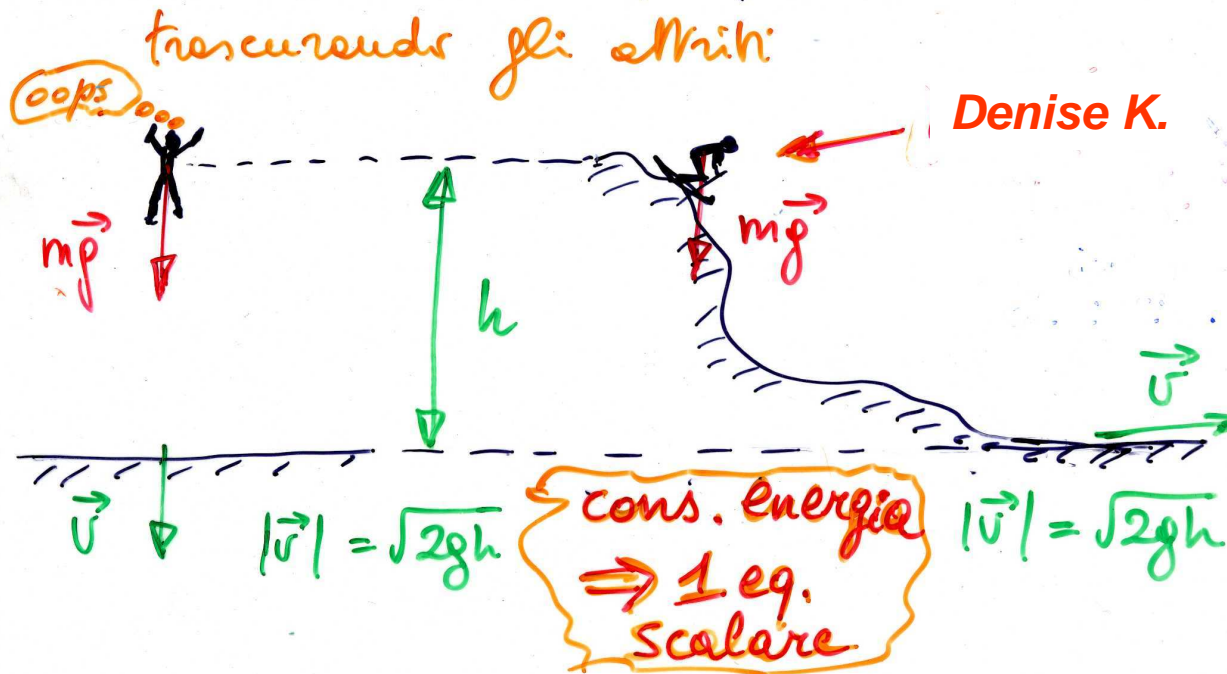 trascurando gli attriti
oops
Denise K.
m\vec{g}
m\vec{g}
h
\vec{v}
\vec{v}
|\vec{v}| = √2gh
cons. energia
⇒ 1 eq.
scalare
|\vec{v}| = √2gh